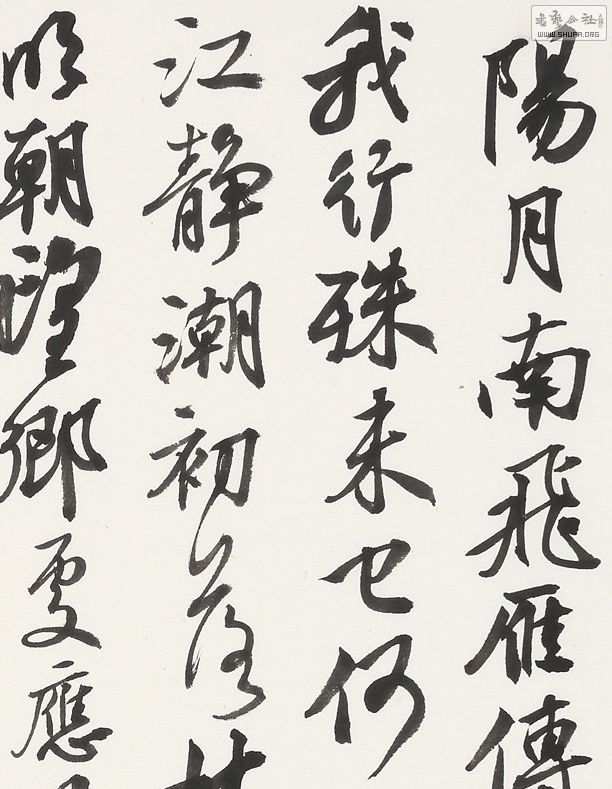 陽月南飛雁傳
我行殊未已何
江静潮初落
明朝望鄉處應
書藝公社
WWW.SHUFA.ORG